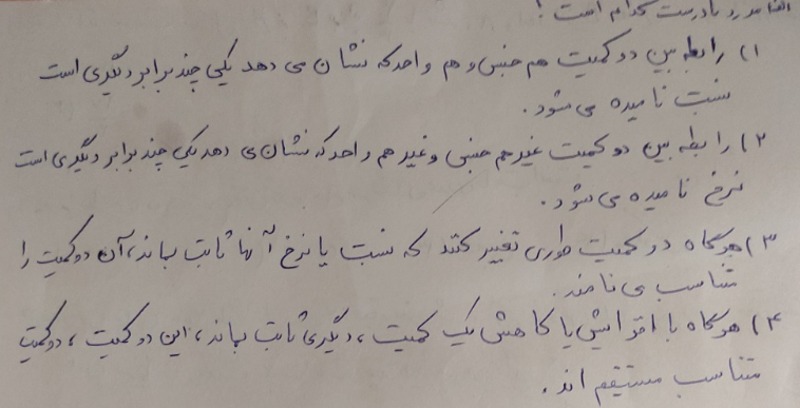 نادرست کدام است؟
۱) رابطه بین دو کمیت هم جنس و هم واحد که نشان می دهد یکی چند برابر دیگری است
نسبت نامیده می شود.
۲) رابطه بین دو کمیت غیر هم جنس و غیر هم واحد که نشان می دهد یکی چند برابر دیگری است
نرخ نامیده می شود.
۳) هرگاه دو کمیت طوری تغییر کنند که نسبت یا نرخ آنها ثابت بماند، آن دو کمیت را
متناسب می نامند.
۴) هرگاه با افزایش یا کاهش یک کمیت، دیگری ثابت بماند، این دو کمیت، دو کمیت
متناسب مستقیم اند.